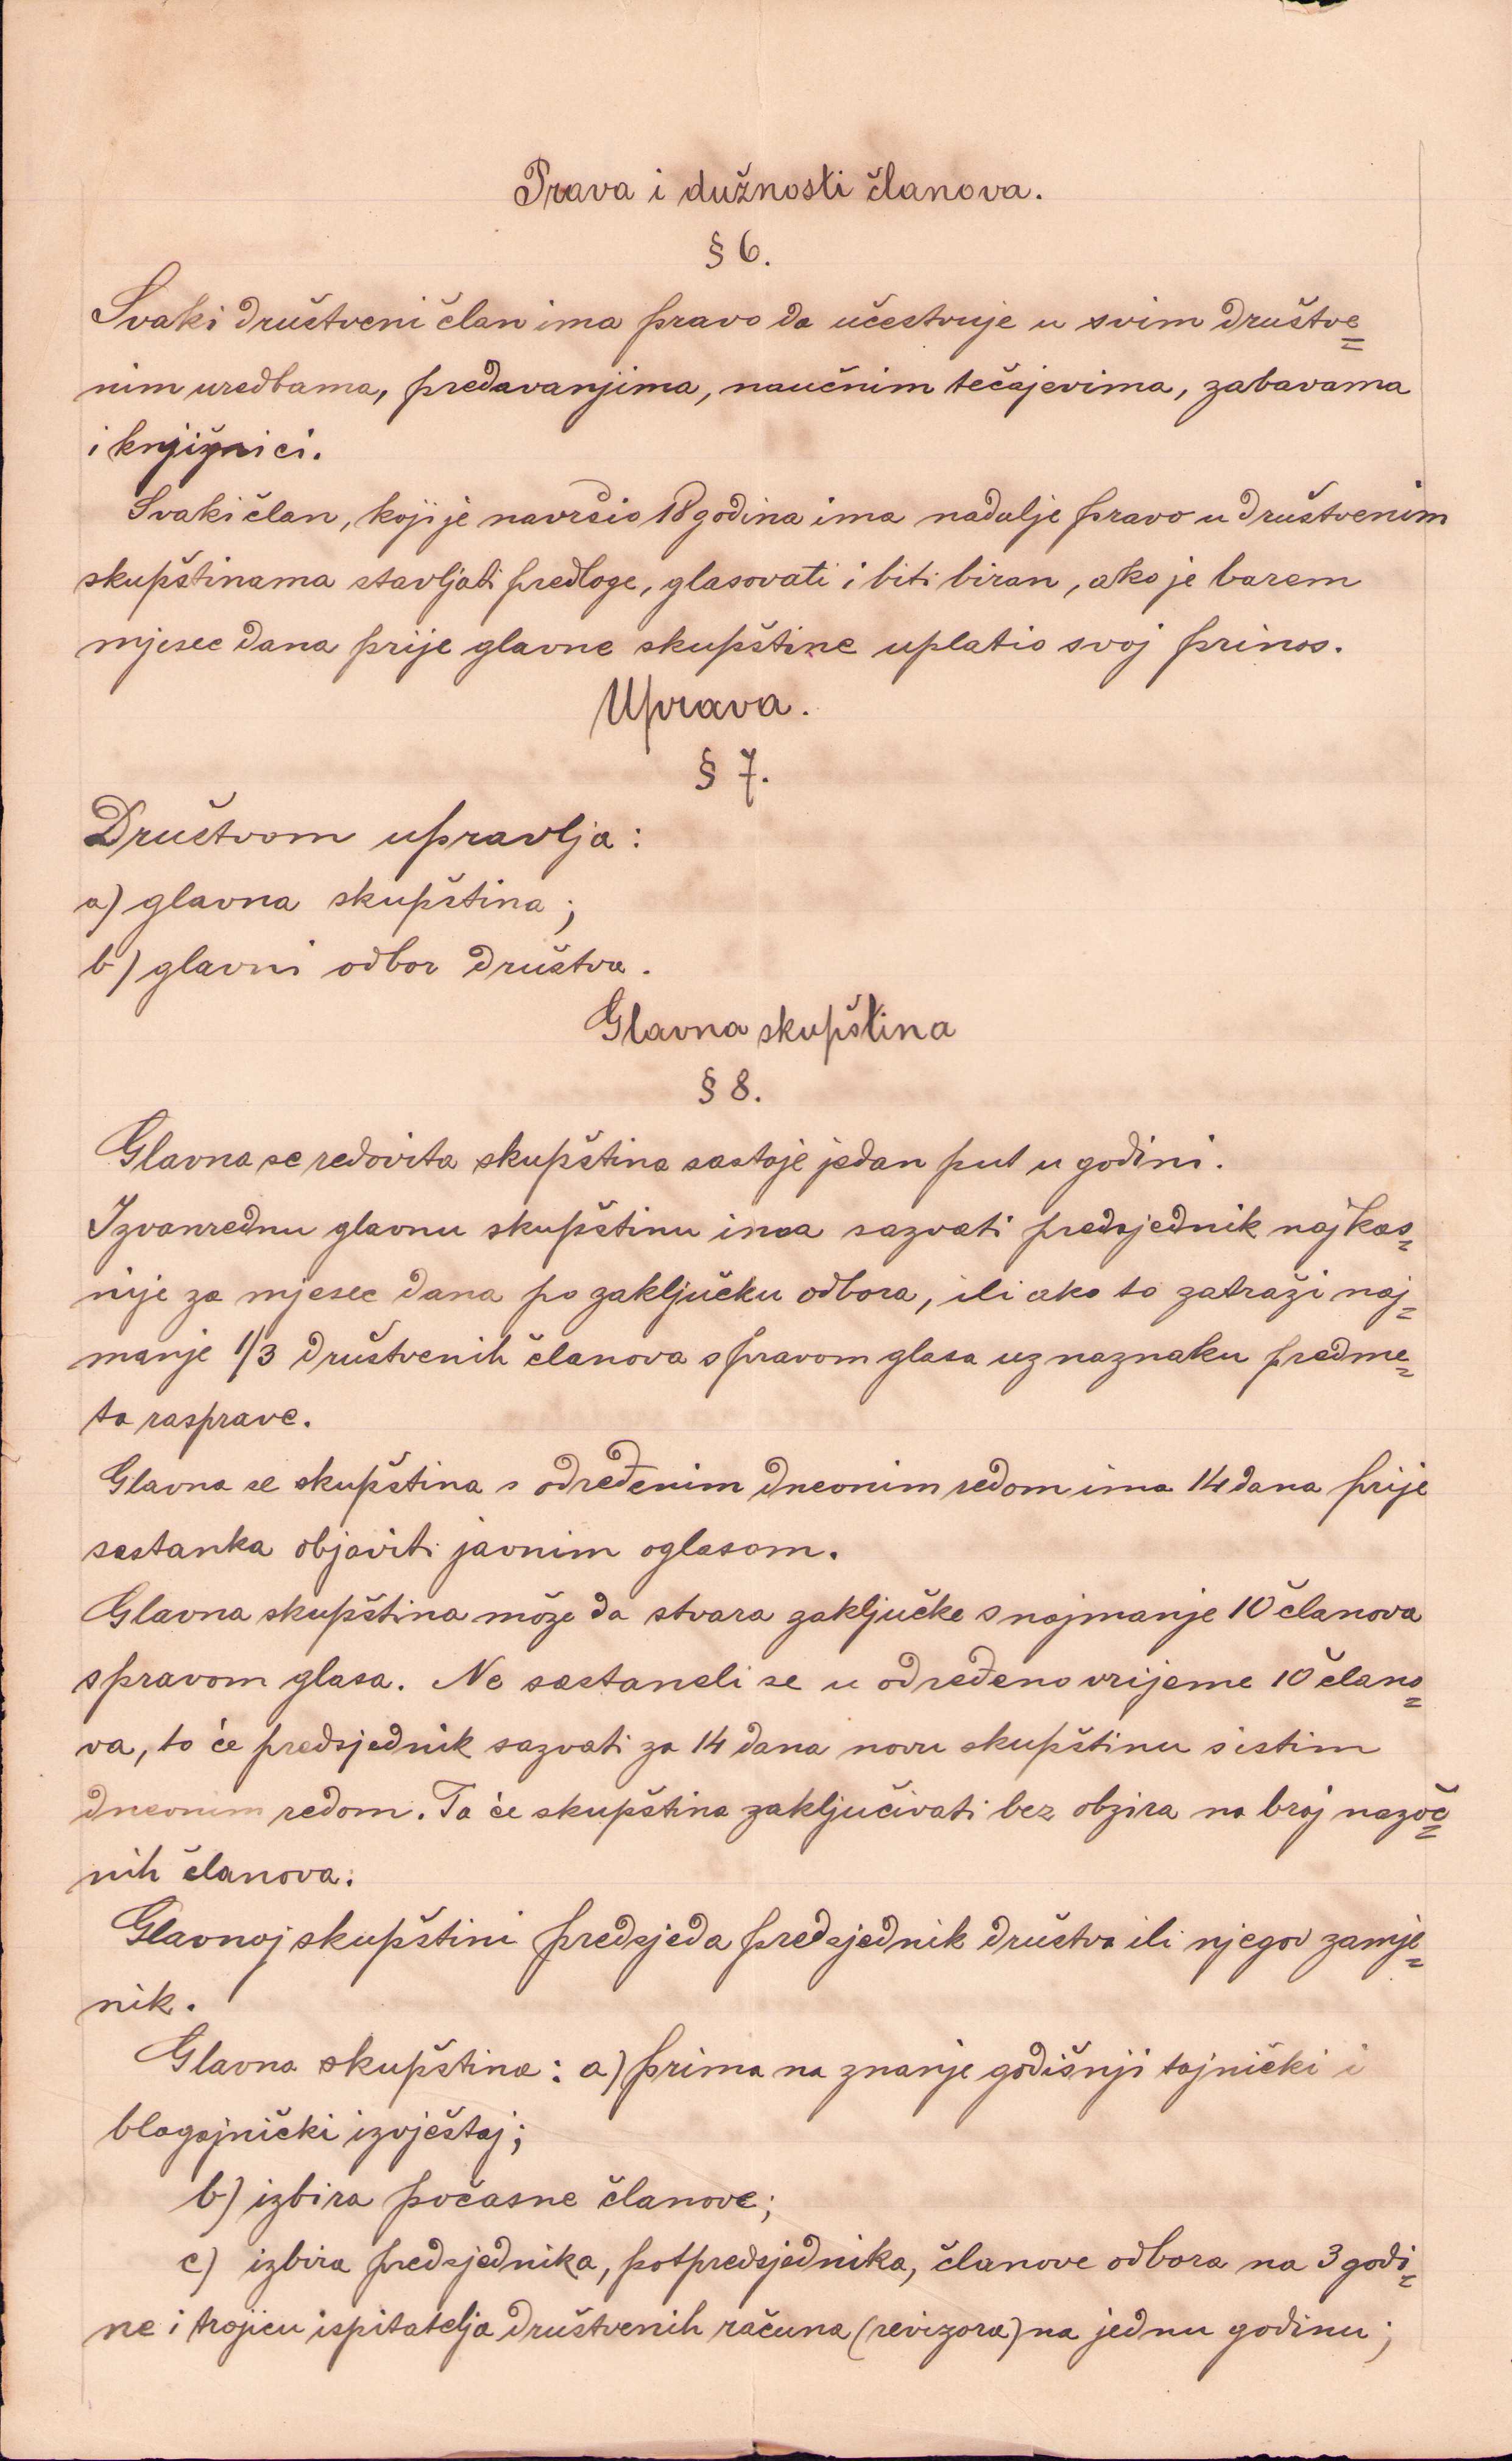 Prava i dužnosti članova.
§ 6.
Svaki društveni član ima pravo da učestvuje u svim društve=
nim uredbama, predavanjima, naučnim tečajevima, zabavama
i knjižnici.
Svaki član, koji je navršio 18 godina ima nadalje pravo u društvenim
skupštinama stavljati predloge, glasovati i biti biran, ako je barem
mjesec dana prije glavne skupštine uplatio svoj prinos.
Uprava.
§ 7.
Društvom upravlja:
a) glavna skupština;
b) glavni odbor društva.
Glavna skupština
§ 8.
Glavna se redovita skupština sastaje jedan put u godini.
Izvanrednu glavnu skupštinu ima sazvati predsjednik najkas=
nije za mjesec dana po zaključku odbora, ili ako to zatraži naj=
manje 1/3 društvenih članova s pravom glasa uz naznaku predme=
ta rasprave.
Glavna se skupština s određenim dnevnim redom ima 14 dana prije
sastanka objaviti javnim oglasom.
Glavna skupština može da stvara zaključke s najmanje 10 članova
s pravom glasa. Ne sastaneli se u određeno vrijeme 10 člano=
va, to će predsjednik sazvati za 14 dana novu skupštinu s istim
dnevnim redom. Ta će skupština zaključivati bez obzira na broj nazoč=
nih članova.
Glavnoj skupštini predsjeda predsjednik društva ili njegov zamje=
nik.
Glavna skupština: a) prima na znanje godišnji tajnički i
blagajnički izvještaj;
b) izbira počasne članove;
c) izbira predsjednika, potpredsjednika, članove odbora na 3 godi=
ne i trojicu ispitatelja društvenih računa (revizora) na jednu godinu;